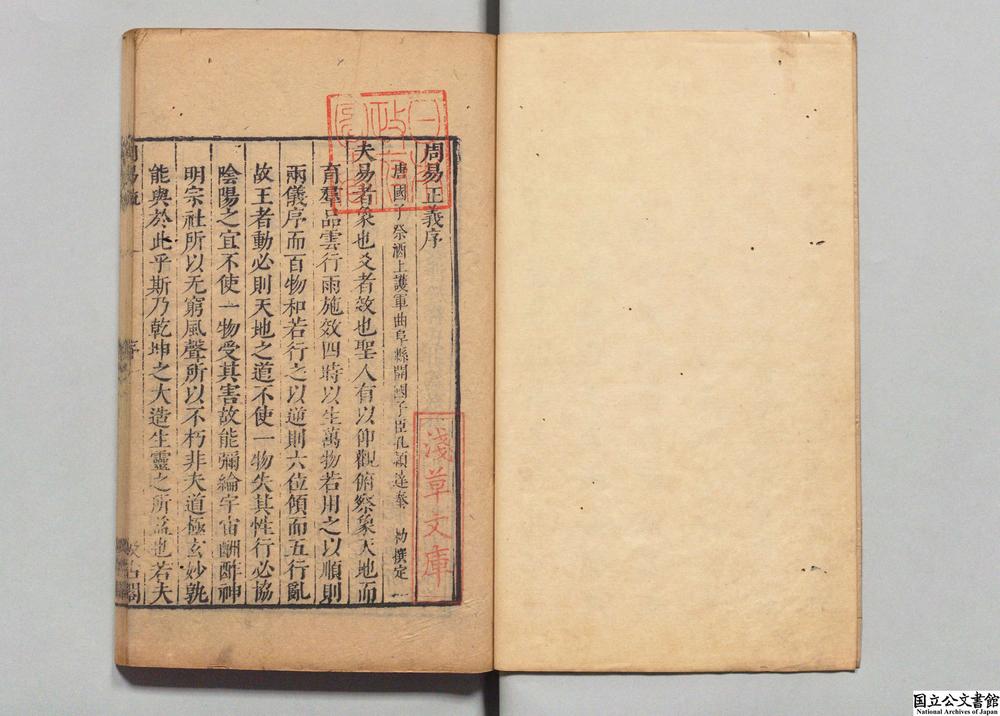 周易正義序
唐國子祭酒上護軍曲阜縣開國子臣孔穎達奉 勑撰定
夫易者象也爻者效也聖人有以仰觀俯察象天地而
育羣品雲行雨施效四時以生萬物若用之以順則
兩儀序而百物和若行之以逆則六位傾而五行亂
故王者動必則天地之道不使一物失其性行必協
陰陽之宜不使一物受其害故能彌綸宇宙酬酢神
明宗社所以无窮風聲所以不朽非夫道極玄妙孰
能與於此乎斯乃乾坤之大造生靈之所益也若夫
淺草文庫
周易
序
汲古閣
国立公文書館
National Archives of Japan